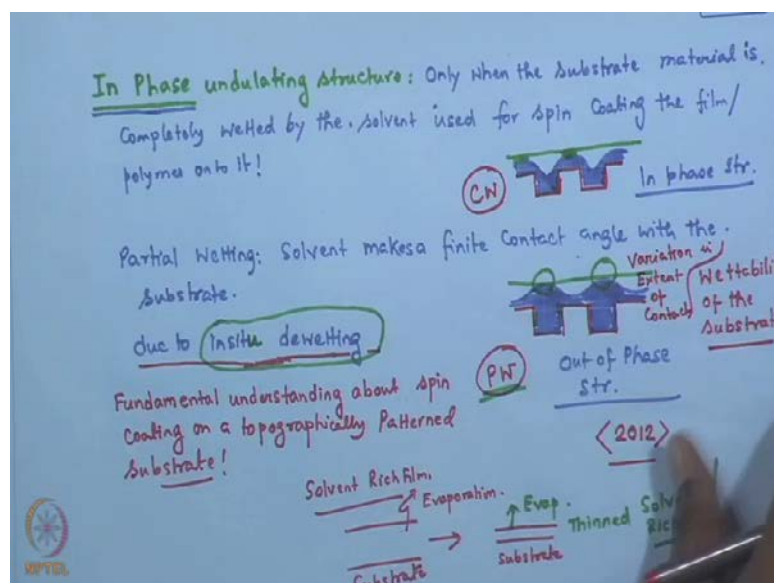 In Phase undulating structure: Only when the substrate material is
Completely wetted by the solvent used for spin Coating the film/
polymer onto it!
CW
In phase Str.
Partial Wetting: Solvent makes a finite Contact angle with the
substrate.
Variation in
Extent
of
Contact
of the
due to insitu dewetting
PW
Out of Phase
Str.
Fundamental understanding about spin
Coating on a topographically Patterned
substrate!
<2012>
Solvent Rich Film.
Evaporation.
Substrate
Evap.
Substrate
Thinned
NPTEL